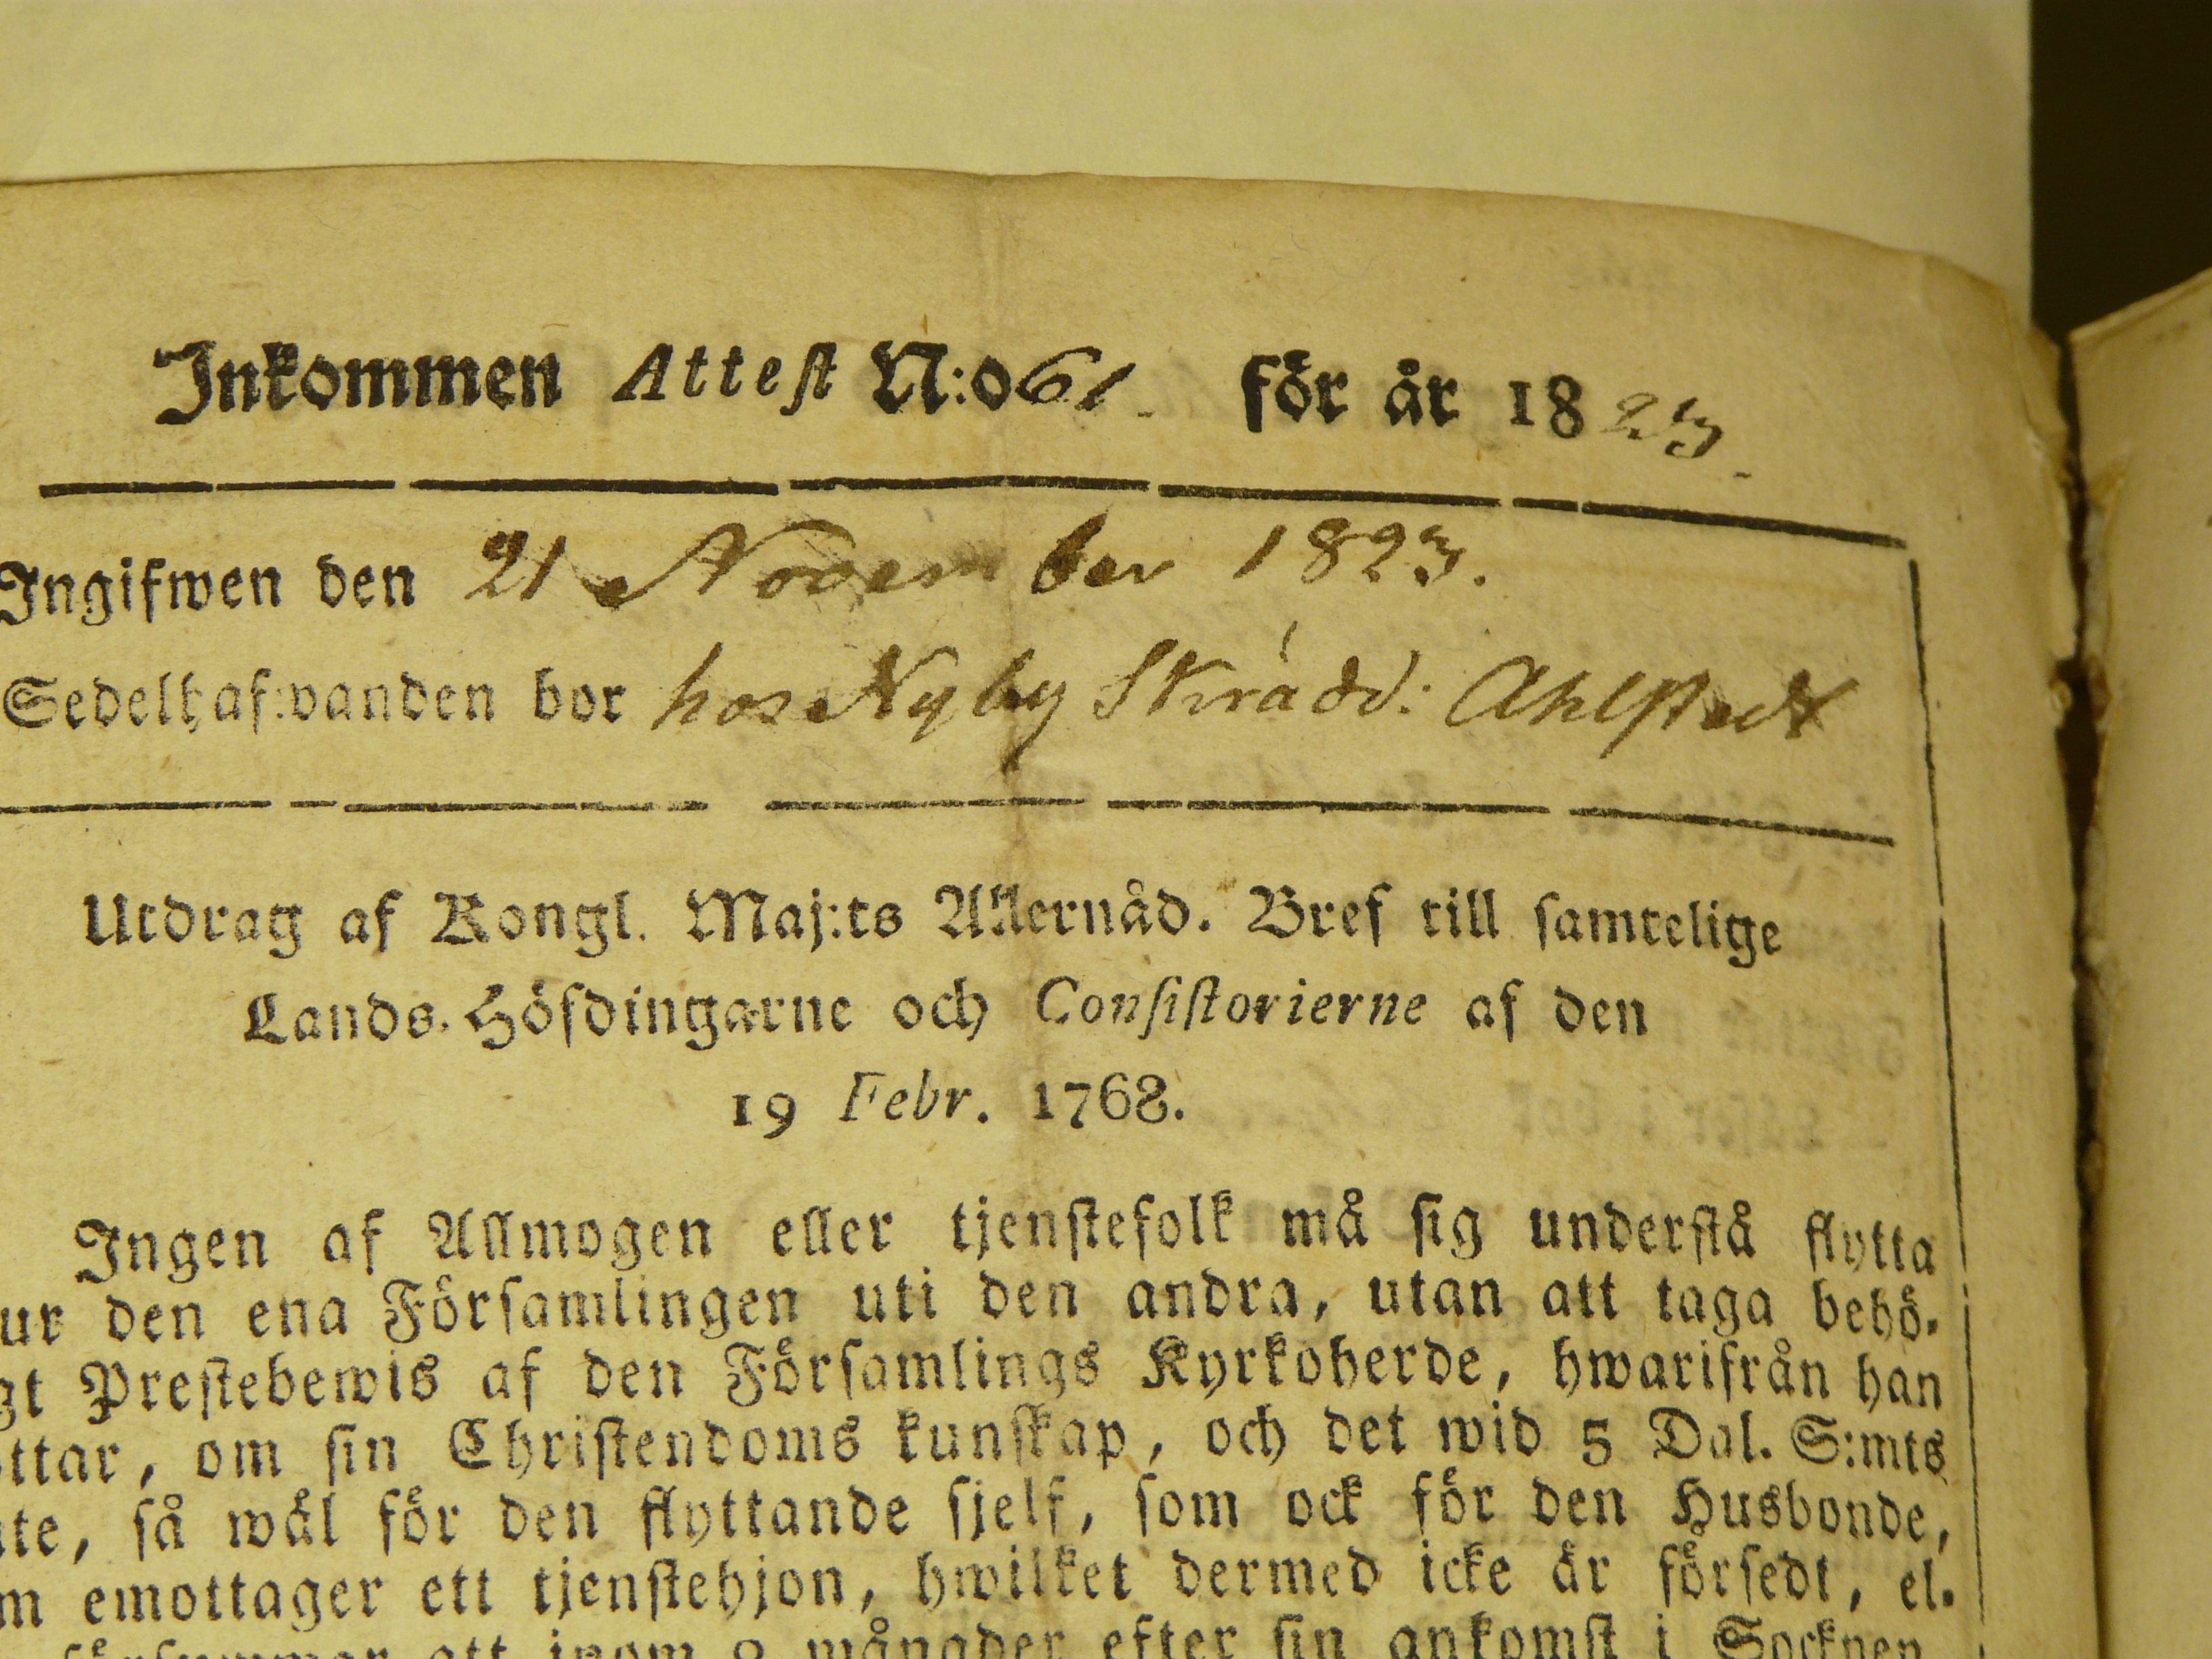 Inkommen Attest N:o 61. för år 1823.
Ingifwen den 21 November 1823.
Sedelhafwanden bor hos Nyby Skrädd: Ahlstedt
Utdrag af Kongl. Maj:ts Allernåd. Bref till samtelige
Lands-Höfdingarne och Consistorierne af den
19 Febr. 1768.
Ingen af Allmogen eller tjenstefolk må sig understå flytta
ur den ena Församlingen uti den andra, utan att taga behö-
gt Prestebewis af den Församlings Kyrkoherde, hwarifrån han
ttar, om sin Christendoms kunskap, och det wid 5 Dal. S:mts
te, så wäl för den flyttande sjelf, som ock för den Husbonde,
m emottager ett tjenstehjon, hwilket dermed icke är försedt, el-
att inom månader efter sin ankomst i Socknen